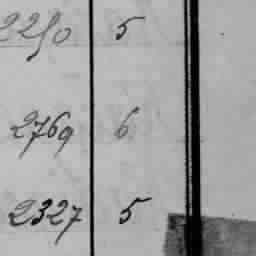 2250 5
2769 6
2327 5